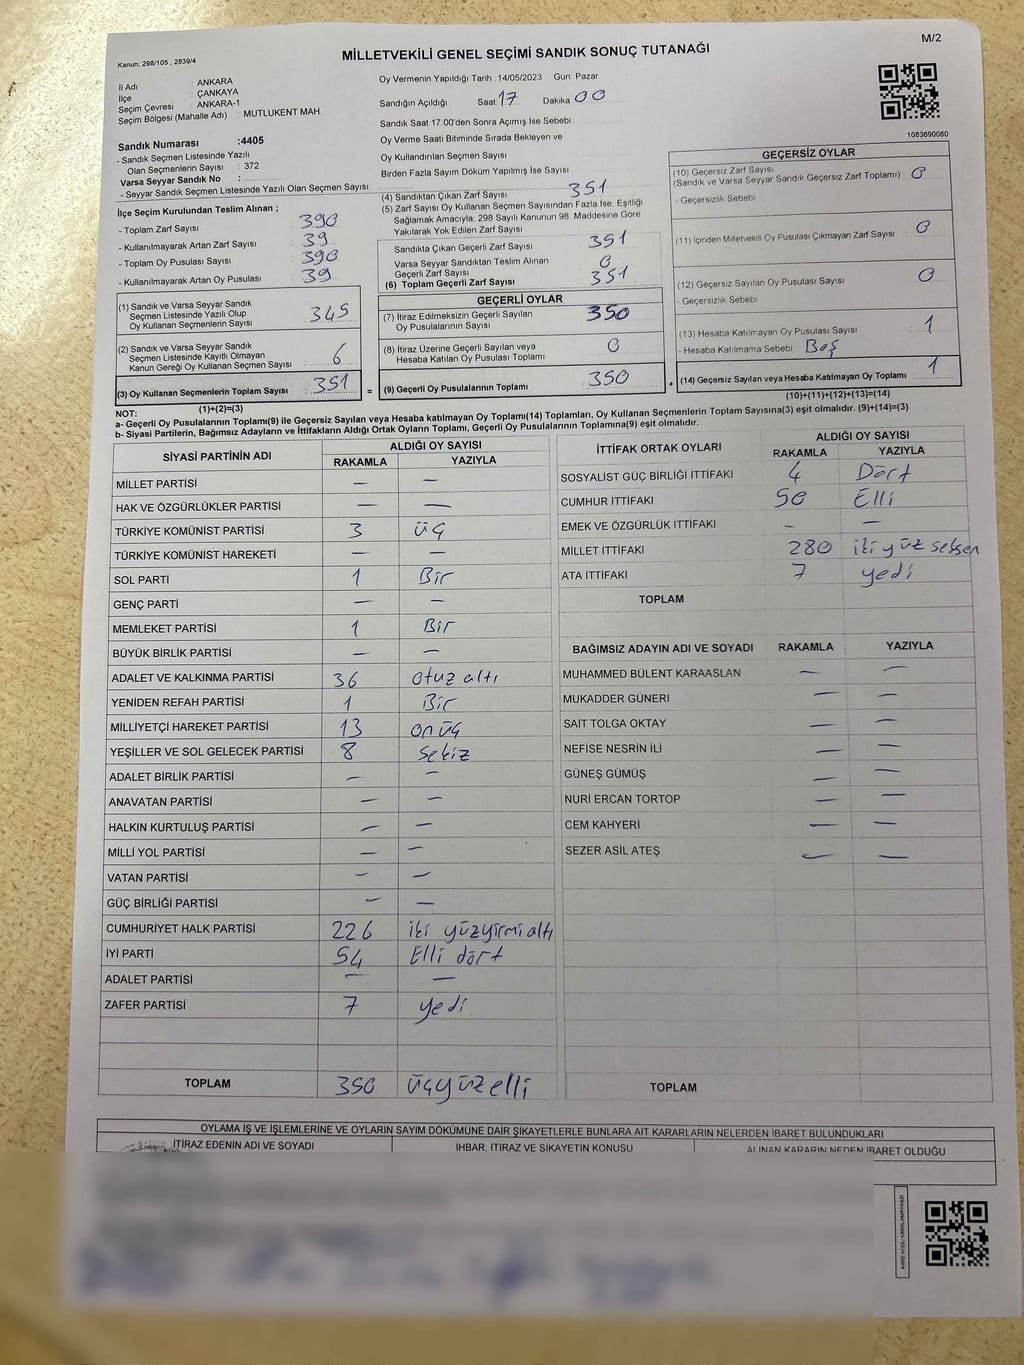 M/2
Kanun: 298/105 , 2839/4
MİLLETVEKİLİ GENEL SEÇİMİ SANDIK SONUÇ TUTANAĞI
İl Adı : ANKARA
İlçe : ÇANKAYA
Seçim Çevresi : ANKARA-1
Seçim Bölgesi (Mahalle Adı) : MUTLUKENT MAH
Oy Vermenin Yapıldığı Tarih :14/05/2023 Gün: Pazar
Sandığın Açıldığı Saat 17 Dakika 00
Sandık Saat 17.00'den Sonra Açımış İse Sebebi
Oy Verme Saati Bitiminde Sırada Bekleyen ve
Oy Kullandırılan Seçmen Sayısı
Birden Fazla Sayım Döküm Yapılmış İse Sayısı
1083690080
Sandık Numarası :4405
- Sandık Seçmen Listesinde Yazılı
Olan Seçmenlerin Sayısı : 372
Varsa Seyyar Sandık No :
- Seyyar Sandık Seçmen Listesinde Yazılı Olan Seçmen Sayısı:
İlçe Seçim Kurulundan Teslim Alınan ;
- Toplam Zarf Sayısı : 390
- Kullanılmayarak Artan Zarf Sayısı : 39
- Toplam Oy Pusulası Sayısı : 390
- Kullanılmayarak Artan Oy Pusulası : 39
(1) Sandık ve Varsa Seyyar Sandık
Seçmen Listesinde Yazılı Olup
Oy Kullanan Seçmenlerin Sayısı 345
(2) Sandık ve Varsa Seyyar Sandık
Seçmen Listesinde Kayıtlı Olmayan
Kanun Gereği Oy Kullanan Seçmen Sayısı 6
(3) Oy Kullanan Seçmenlerin Toplam Sayısı 351 =
(1)+(2)=(3)
(4) Sandıktan Çıkan Zarf Sayısı 351
(5) Zarf Sayısı Oy Kullanan Seçmen Sayısından Fazla İse, Eşitliği
Sağlamak Amacıyla, 298 Sayılı Kanunun 98. Maddesine Göre
Yakılarak Yok Edilen Zarf Sayısı
Sandıkta Çıkan Geçerli Zarf Sayısı 351
Varsa Seyyar Sandıktan Teslim Alınan
Geçerli Zarf Sayısı 0
(6) Toplam Geçerli Zarf Sayısı 351
GEÇERLİ OYLAR
(7) İtiraz Edilmeksizin Geçerli Sayılan
Oy Pusulalarının Sayısı 350
(8) İtiraz Üzerine Geçerli Sayılan veya
Hesaba Katılan Oy Pusulası Toplamı 0
(9) Geçerli Oy Pusulalarının Toplamı 350 +
GEÇERSİZ OYLAR
(10) Geçersiz Zarf Sayısı
(Sandık ve Varsa Seyyar Sandık Geçersiz Zarf Toplamı) : 0
- Geçersizlik Sebebi
(11) İçinden Milletvekili Oy Pusulası Çıkmayan Zarf Sayısı 0
(12) Geçersiz Sayılan Oy Pusulası Sayısı 0
- Geçersizlik Sebebi
(13) Hesaba Katılmayan Oy Pusulası Sayısı 1
- Hesaba Katılmama Sebebi Boş
(14) Geçersiz Sayılan veya Hesaba Katılmayan Oy Toplamı 1
(10)+(11)+(12)+(13)=(14)
NOT:
a- Geçerli Oy Pusulalarının Toplamı(9) ile Geçersiz Sayılan veya Hesaba katılmayan Oy Toplamı(14) Toplamları, Oy Kullanan Seçmenlerin Toplam Sayısına(3) eşit olmalıdır. (9)+(14)=(3)
b- Siyasi Partilerin, Bağımsız Adayların ve İttifakların Aldığı Ortak Oyların Toplamı, Geçerli Oy Pusulalarının Toplamına(9) eşit olmalıdır.
SİYASİ PARTİNİN ADI ALDIĞI OY SAYISI
RAKAMLA YAZIYLA
MİLLET PARTİSİ — —
HAK VE ÖZGÜRLÜKLER PARTİSİ — —
TÜRKİYE KOMÜNİST PARTİSİ 3 üç
TÜRKİYE KOMÜNİST HAREKETİ — —
SOL PARTİ 1 Bir
GENÇ PARTİ — —
MEMLEKET PARTİSİ 1 Bir
BÜYÜK BİRLİK PARTİSİ — —
ADALET VE KALKINMA PARTİSİ 36 otuz altı
YENİDEN REFAH PARTİSİ 1 Bir
MİLLİYETÇİ HAREKET PARTİSİ 13 on üç
YEŞİLLER VE SOL GELECEK PARTİSİ 8 sekiz
ADALET BİRLİK PARTİSİ — —
ANAVATAN PARTİSİ — —
HALKIN KURTULUŞ PARTİSİ — —
MİLLİ YOL PARTİSİ — —
VATAN PARTİSİ — —
GÜÇ BİRLİĞİ PARTİSİ — —
CUMHURİYET HALK PARTİSİ 226 iki yüzyirmialtı
İYİ PARTİ 54 Elli dört
ADALET PARTİSİ — —
ZAFER PARTİSİ 7 yedi
TOPLAM 350 üçyüzelli
İTTİFAK ORTAK OYLARI ALDIĞI OY SAYISI
RAKAMLA YAZIYLA
SOSYALİST GÜÇ BİRLİĞİ İTTİFAKI 4 Dört
CUMHUR İTTİFAKI 50 Elli
EMEK VE ÖZGÜRLÜK İTTİFAKI — —
MİLLET İTTİFAKI 280 iki yüz seksen
ATA İTTİFAKI 7 yedi
TOPLAM
BAĞIMSIZ ADAYIN ADI VE SOYADI RAKAMLA YAZIYLA
MUHAMMED BÜLENT KARAASLAN — —
MUKADDER GÜNERİ — —
SAİT TOLGA OKTAY — —
NEFİSE NESRİN İLİ — —
GÜNEŞ GÜMÜŞ — —
NURİ ERCAN TORTOP — —
CEM KAHYERİ — —
SEZER ASİL ATEŞ — —
TOPLAM
OYLAMA İŞ VE İŞLEMLERİNE VE OYLARIN SAYIM DÖKÜMÜNE DAİR ŞİKAYETLERLE BUNLARA AİT KARARLARIN NELERDEN İBARET BULUNDUKLARI
İTİRAZ EDENİN ADI VE SOYADI İHBAR, İTİRAZ VE ŞİKAYETİN KONUSU ALINAN KARARIN NEDEN İBARET OLDUĞU
KARE KODU KARALAMAYINIZ!